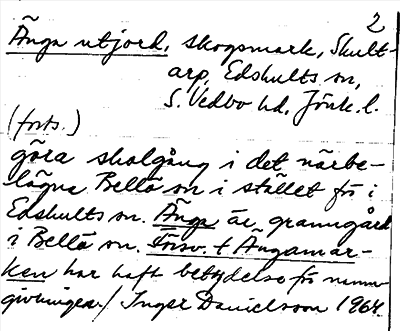 2
Änga utjord, skogsmark, Skult-
arp, Edshults sn,
S. Vedbo hd, Jönk. l.
(forts.)
göra skolgång i det närbe-
lägna Bellö sn i stället för i
Edshults sn. Änga är granngård
i Bellö sn. Försv. t Ängamar-
ken har haft betydelse för namn
givningen./ Inger Danielsson 1964.